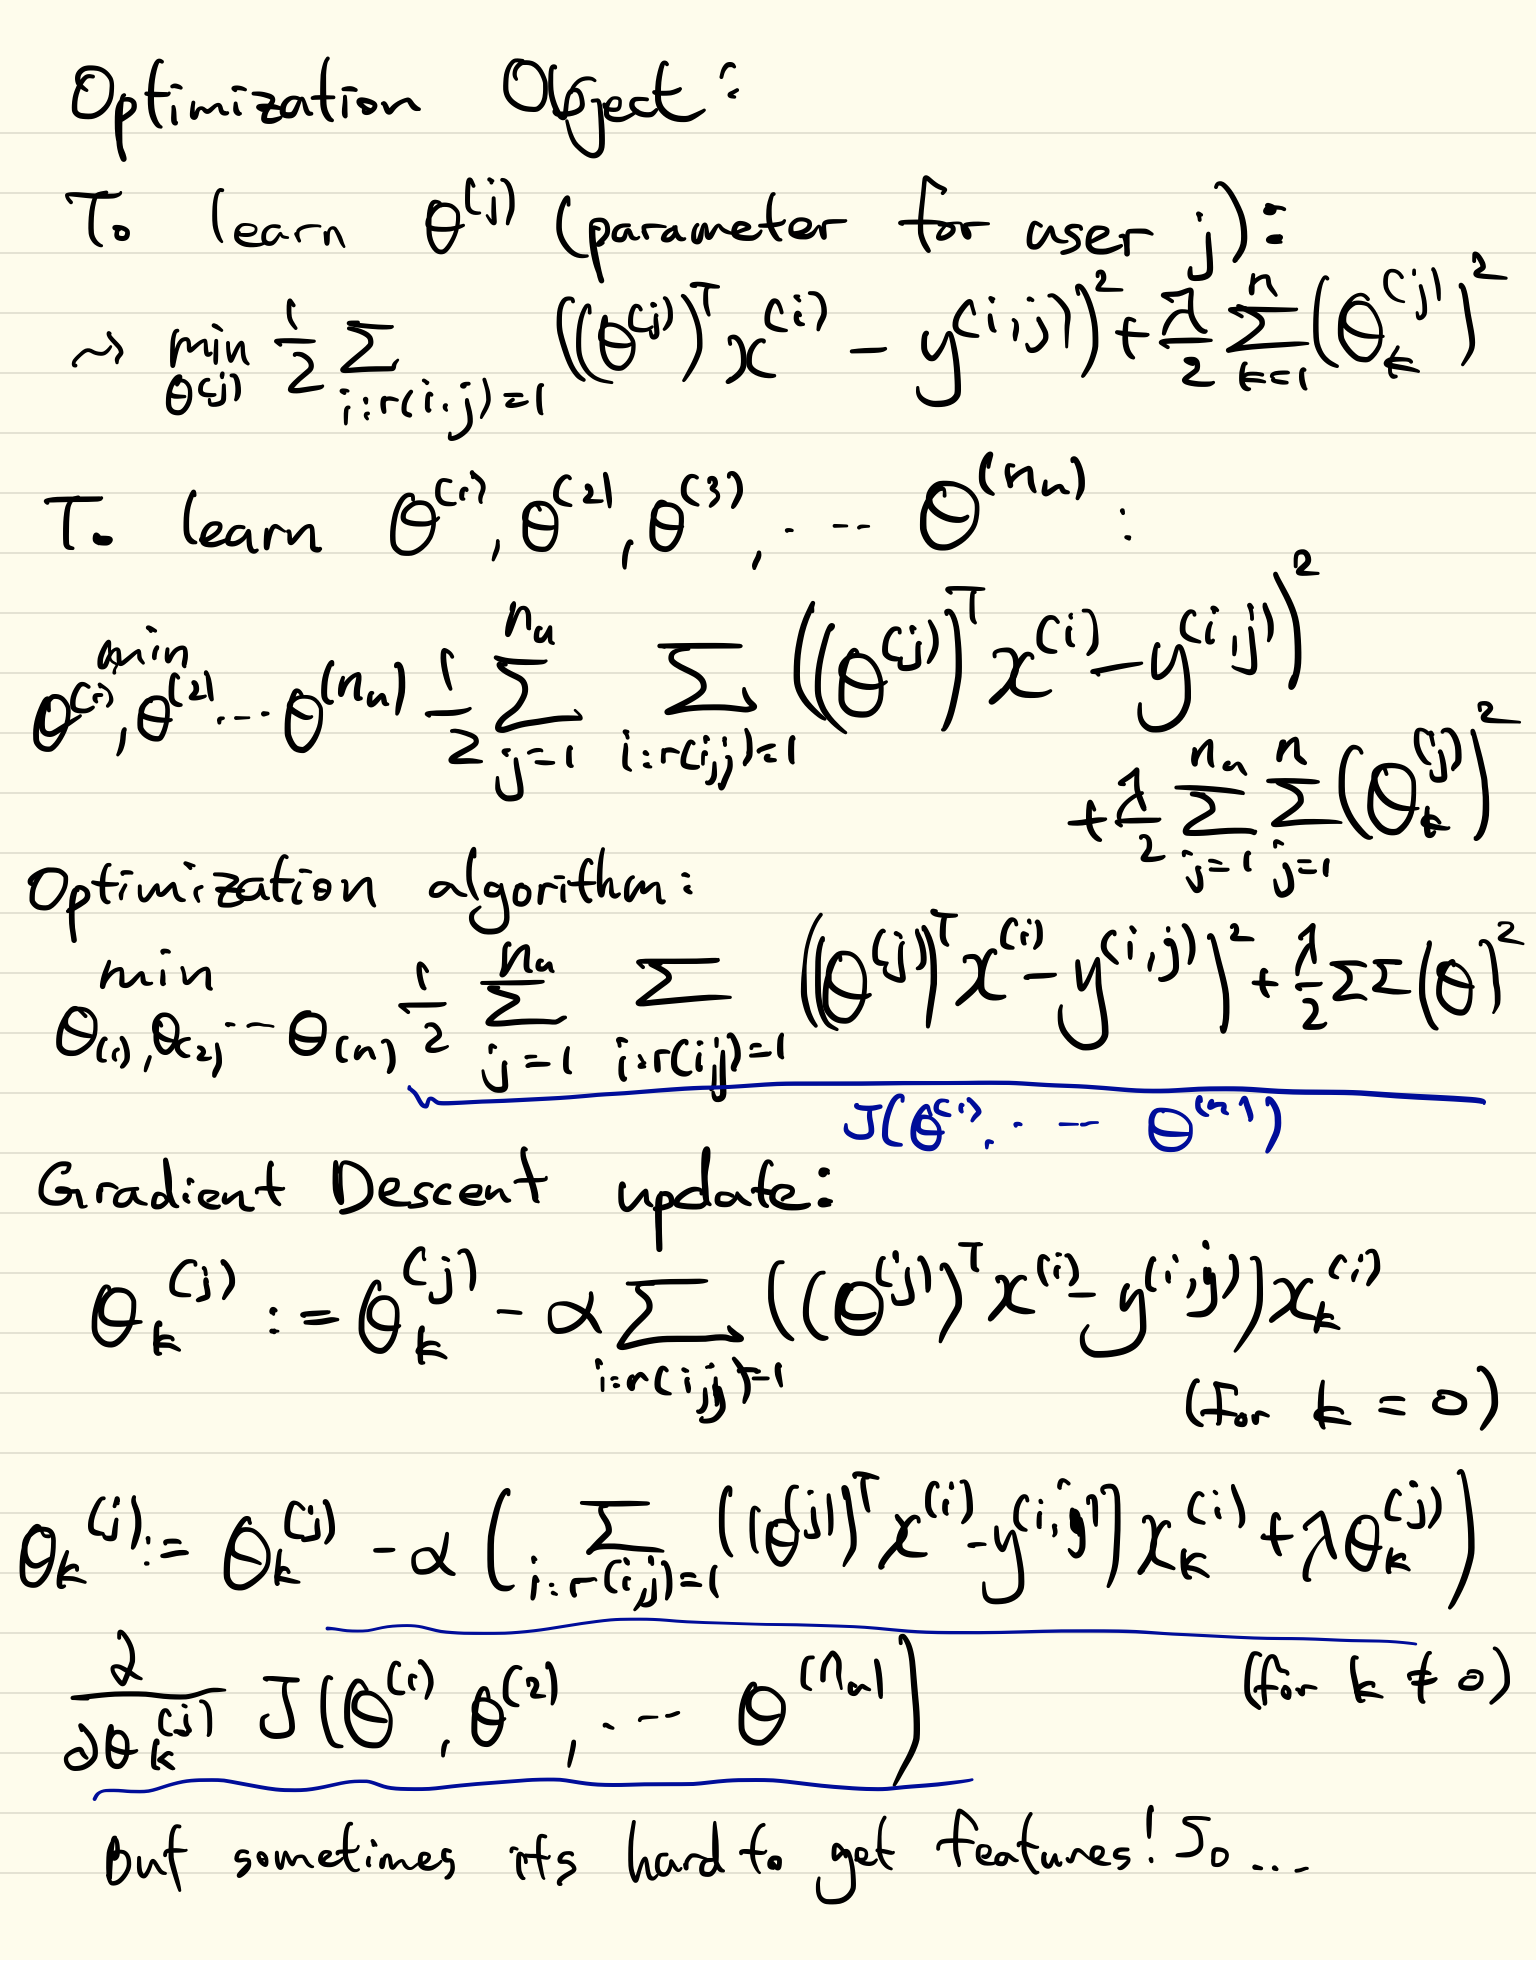 Optimization Object:
To learn θ^(j) (parameter for user j):
⤳ min_{θ^(j)} 1/2 Σ_{i:r(i,j)=1} ((θ^(j))^T x^(i) − y^(i,j))^2 + λ/2 Σ_{k=1}^{n} (θ_k^(j))^2
To learn θ^(1), θ^(2), θ^(3), ... θ^(n_u):
min_{θ^(1), θ^(2) ... θ^(n_u)} 1/2 Σ_{j=1}^{n_u} Σ_{i:r(i,j)=1} ((θ^(j))^T x^(i) − y^(i,j))^2
+ λ/2 Σ_{j=1}^{n_u} Σ_{j=1}^{n} (θ_k^(j))^2
Optimization algorithm:
min_{θ_(1), θ_(2) ... θ_(n)} 1/2 Σ_{j=1}^{n_u} Σ_{i:r(i,j)=1} ((θ^(j))^T x^(i) − y^(i,j))^2 + λ/2 ΣΣ(θ)^2
J(θ^(1), ... θ^(n))
Gradient Descent update:
θ_k^(j) := θ_k^(j) − α Σ_{i:r(i,j)=1} ((θ^(j))^T x^(i) − y^(i,j)) x_k^(i)
(for k = 0)
θ_k^(j) := θ_k^(j) − α (Σ_{i:r(i,j)=1} ((θ^(j))^T x^(i) − y^(i,j)) x_k^(i) + λθ_k^(j))
(for k ≠ 0)
∂/∂θ_k^(j) J(θ^(1), θ^(2), ... θ^(n_u))
But sometimes its hard to get features! So ...